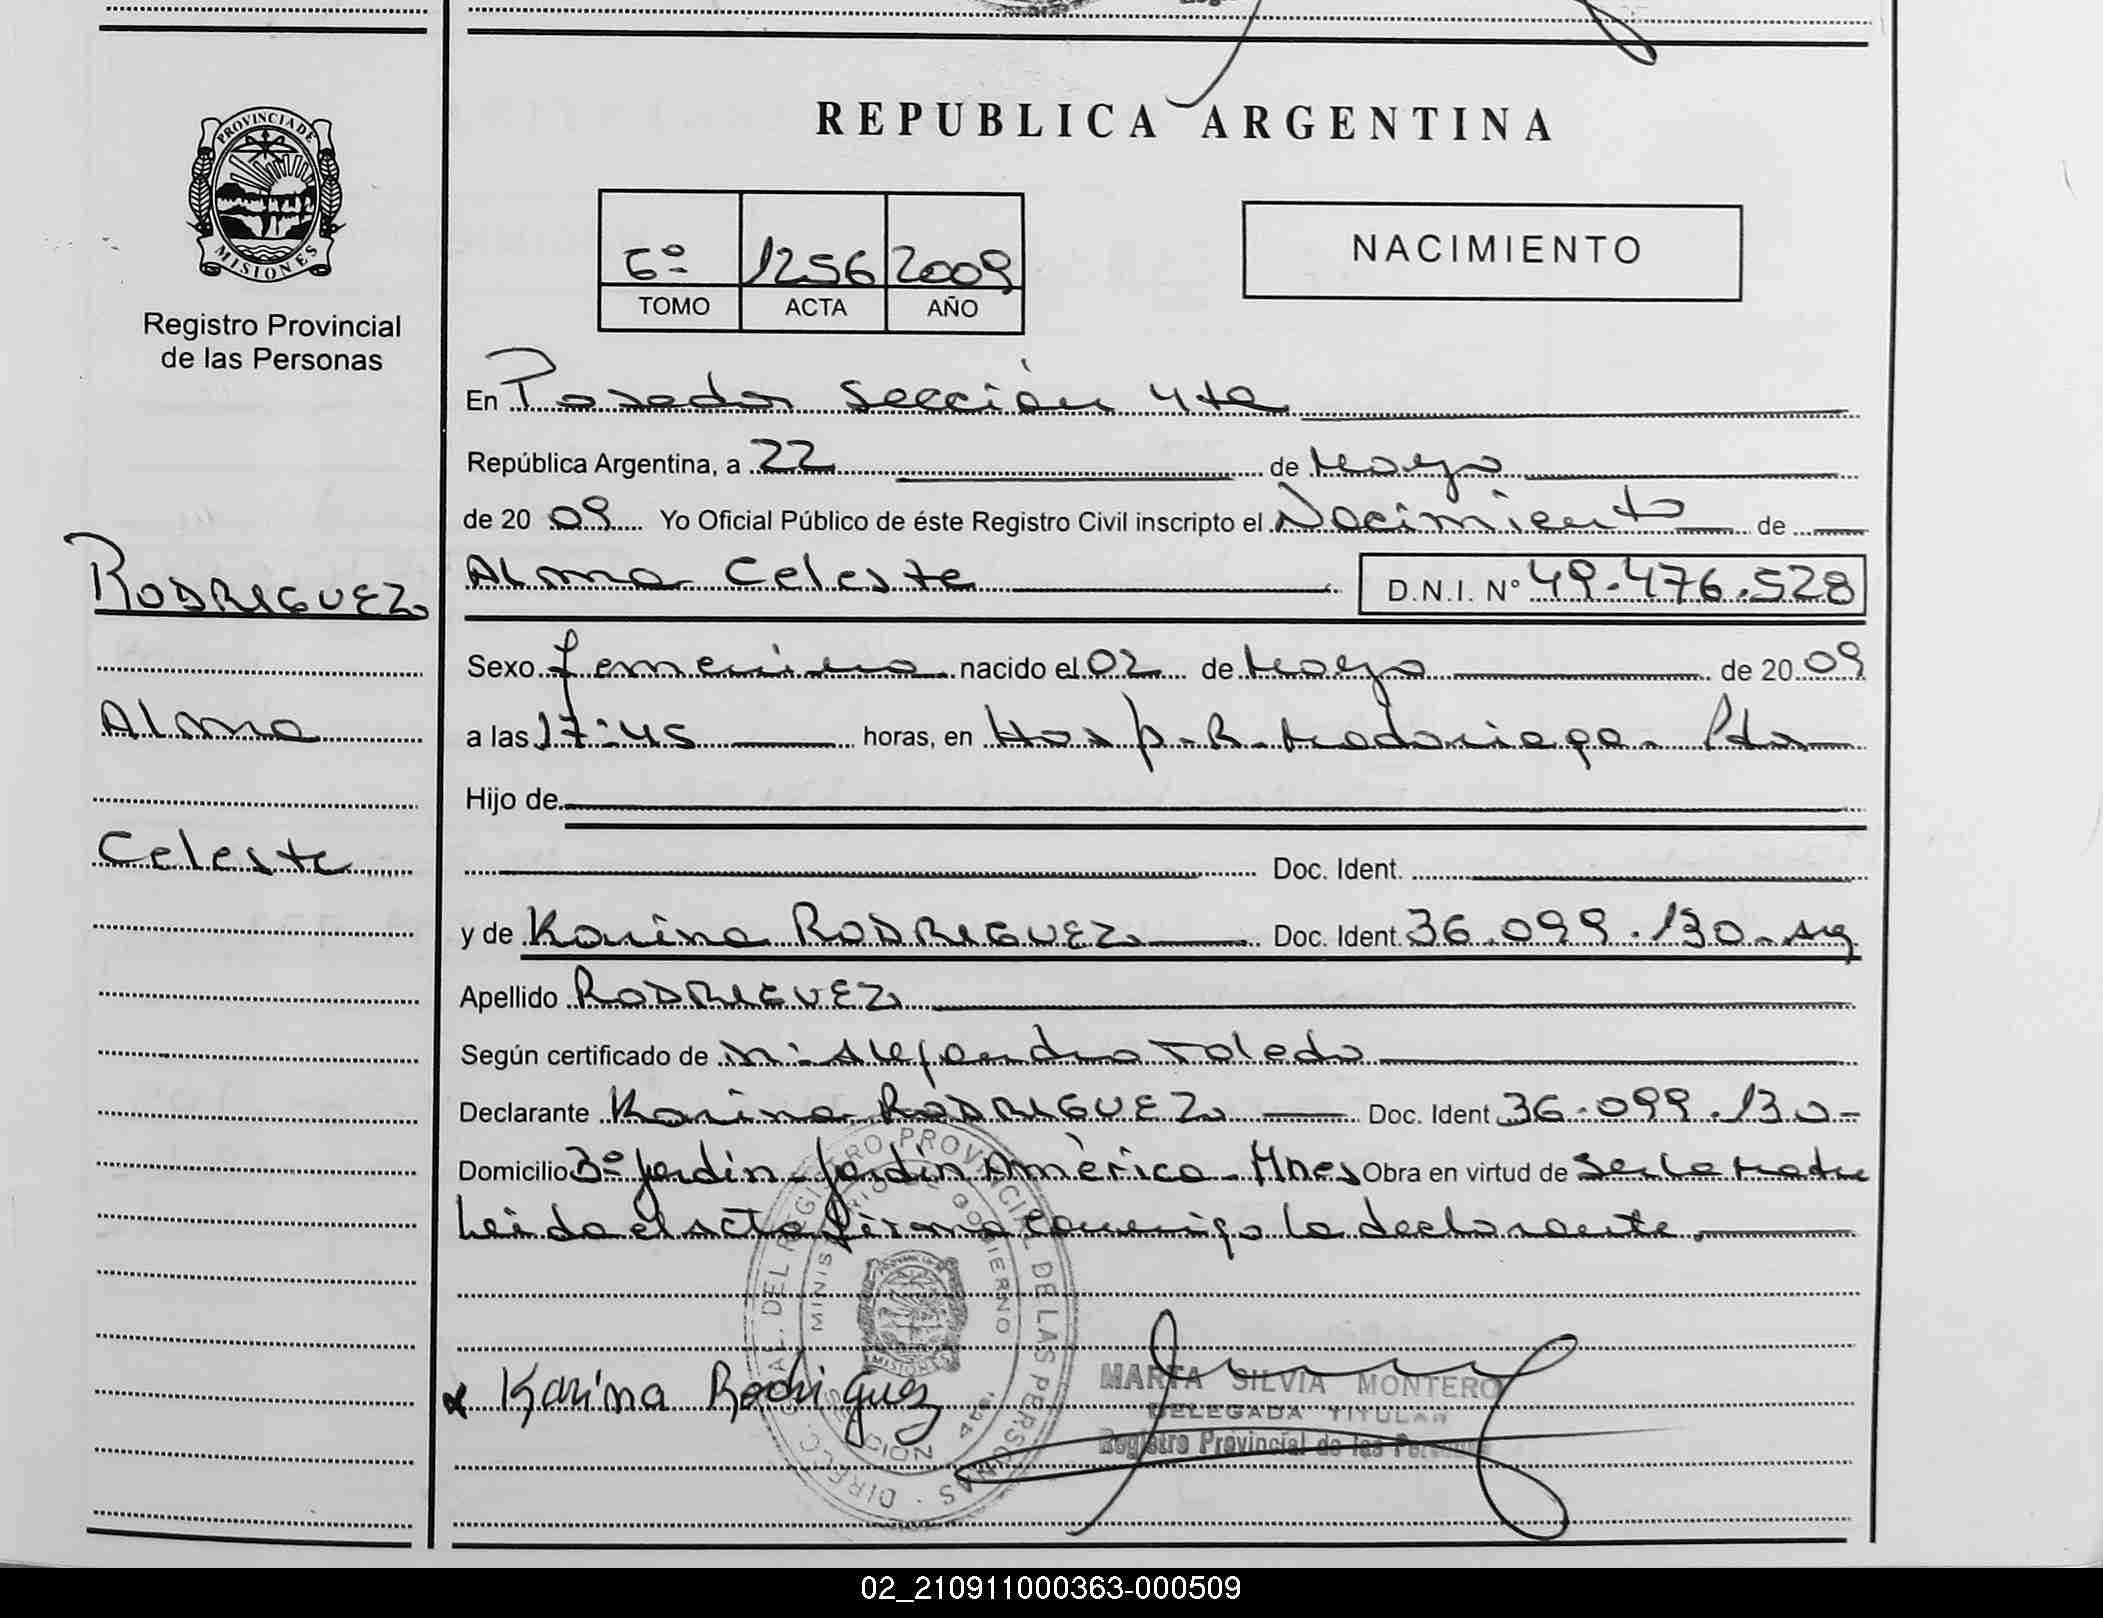 REPUBLICA ARGENTINA
PROVINCIA DE
MISIONES
Registro Provincial
de las Personas
6º 1256 2009
TOMO ACTA AÑO
NACIMIENTO
RODRIGUEZ
Alma
Celeste
En Posadas Sección 4ta
República Argentina, a 22 de Mayo
de 2009 Yo Oficial Público de éste Registro Civil inscripto el Nacimiento de
Alma Celeste D.N.I. Nº 49.476.528
Sexo femenino nacido el 02 de Mayo de 2009
a las 17:45 horas, en Hosp. R. Madariaga. Pdas
Hijo de
Doc. Ident.
y de Karina RODRIGUEZ Doc. Ident. 36.099.130. Arg
Apellido RODRIGUEZ
Según certificado de Alejandro Toledo
Declarante Karina RODRIGUEZ Doc. Ident 36.099.130-
Domicilio Bº Jardín - Jardín América - Mnes Obra en virtud de ser la Madre
Leida el Acta firma conmigo la declarante.
DIRECC. GRAL. DEL REGISTRO PROVINCIAL DE LAS PERSONAS
MINISTERIO DE GOBIERNO
SECCION 4ta.
MISIONES
Karina Rodriguez
MARTA SILVIA MONTERO
DELEGADA TITULAR
Registro Provincial de las Personas
02_210911000363-000509